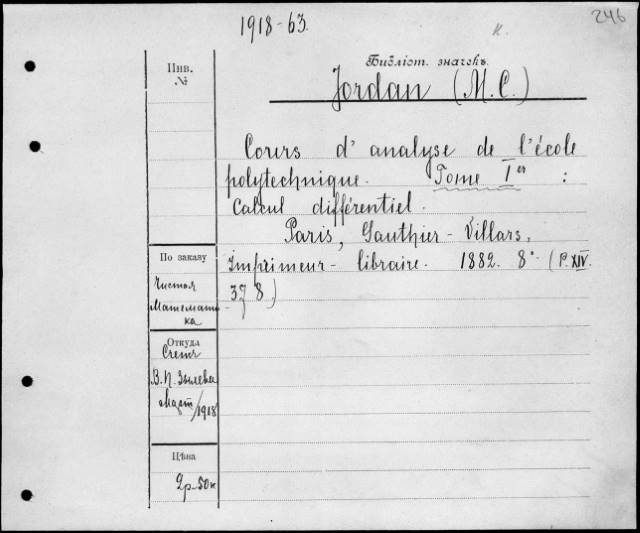 1918-63.
к.
246
Инв.
№
Библіот. значекъ.
Jordan (M. C.)
Cours d'analyse de l'école
polytechnique. Tome Ier :
Calcul différentiel.
Paris, Gauthier-Villars,
Imprimeur-libraire. 1882. 8° (P. XIV.
378)
По заказу
Чистая
Математи-
ка
Откуда
Счетъ
В. П.
1918
Цѣна
2р-50к